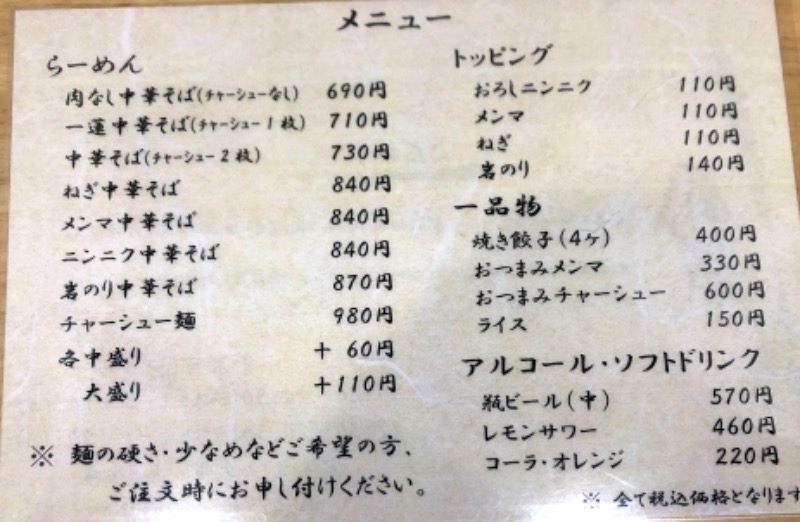 メニュー
らーめん
肉なし中華そば(チャーシューなし) 690円
一蓮中華そば(チャーシュー1枚) 710円
中華そば(チャーシュー2枚) 730円
ねぎ中華そば 840円
メンマ中華そば 840円
ニンニク中華そば 840円
岩のり中華そば 870円
チャーシュー麺 980円
各中盛り +60円
大盛り +110円
※ 麺の硬さ・少なめなどご希望の方、
ご注文時にお申し付けください。
トッピング
おろしニンニク 110円
メンマ 110円
ねぎ 110円
岩のり 140円
一品物
焼き餃子(4ヶ) 400円
おつまみメンマ 330円
おつまみチャーシュー 600円
ライス 150円
アルコール・ソフトドリンク
瓶ビール(中) 570円
レモンサワー 460円
コーラ・オレンジ 220円
※ 全て税込価格となります